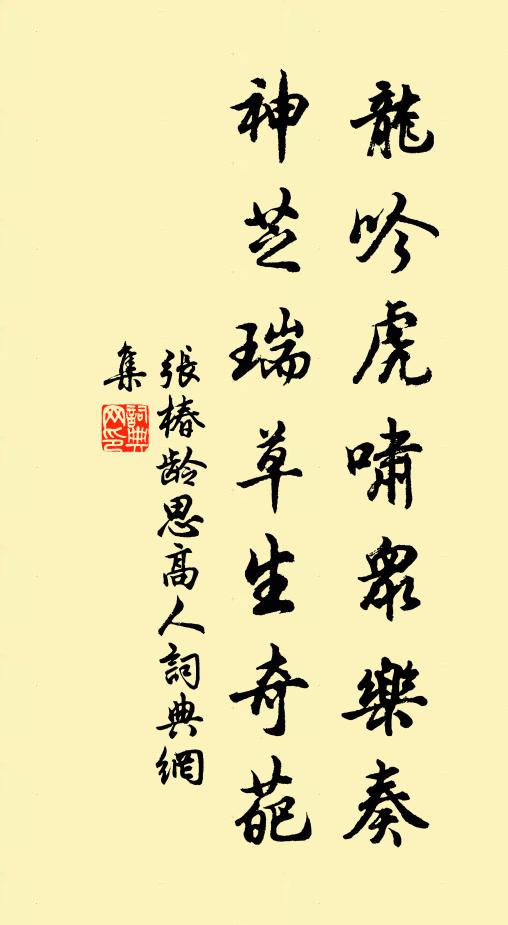 龍吟虎嘯眾樂奏
神芝瑞草生奇葩
張椿齡思高人詞典網
集
詞典網印